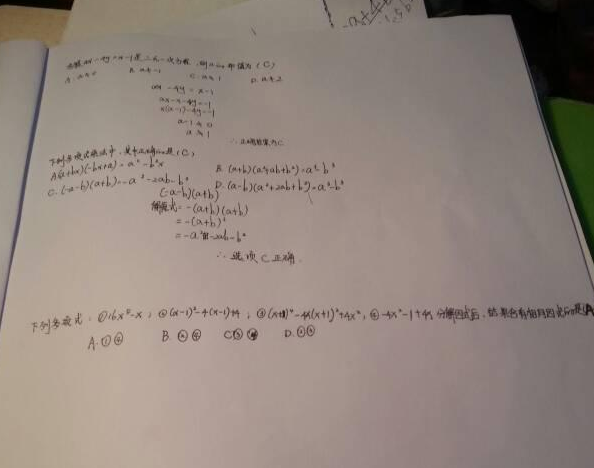 方程ax-4y=x-1是二元一次方程,则a的取值为(C)
A. a≠0 B. a≠-1 C. a≠1 D. a≠2
ax-4y=x-1
ax-x-4y=-1
x(a-1)-4y=-1
a-1≠0
a≠1
∴正确答案为C
下列多项式乘法中,其中正确的是(C)
A(a+bx)(-bx+a)=a²-b²x B.(a+b)(a²+ab+b²)=a³-b³
C.(-a-b)(a+b)=-a²-2ab-b² D.(a-b)(a²+2ab+b²)=a³-b³
(-a-b)(a+b)
解原式=-(a+b)(a+b)
=-(a+b)²
=-a²-2ab-b²
∴选项C正确.
下列多项式:①16x⁵-x;②(x-1)²-4(x-1)+4;③(x+1)⁴-4x(x+1)²+4x²;④-4x²-1+4x,分解因式后,结果含有相同因式的是(A
A.①④ B.②④ C③④ D.